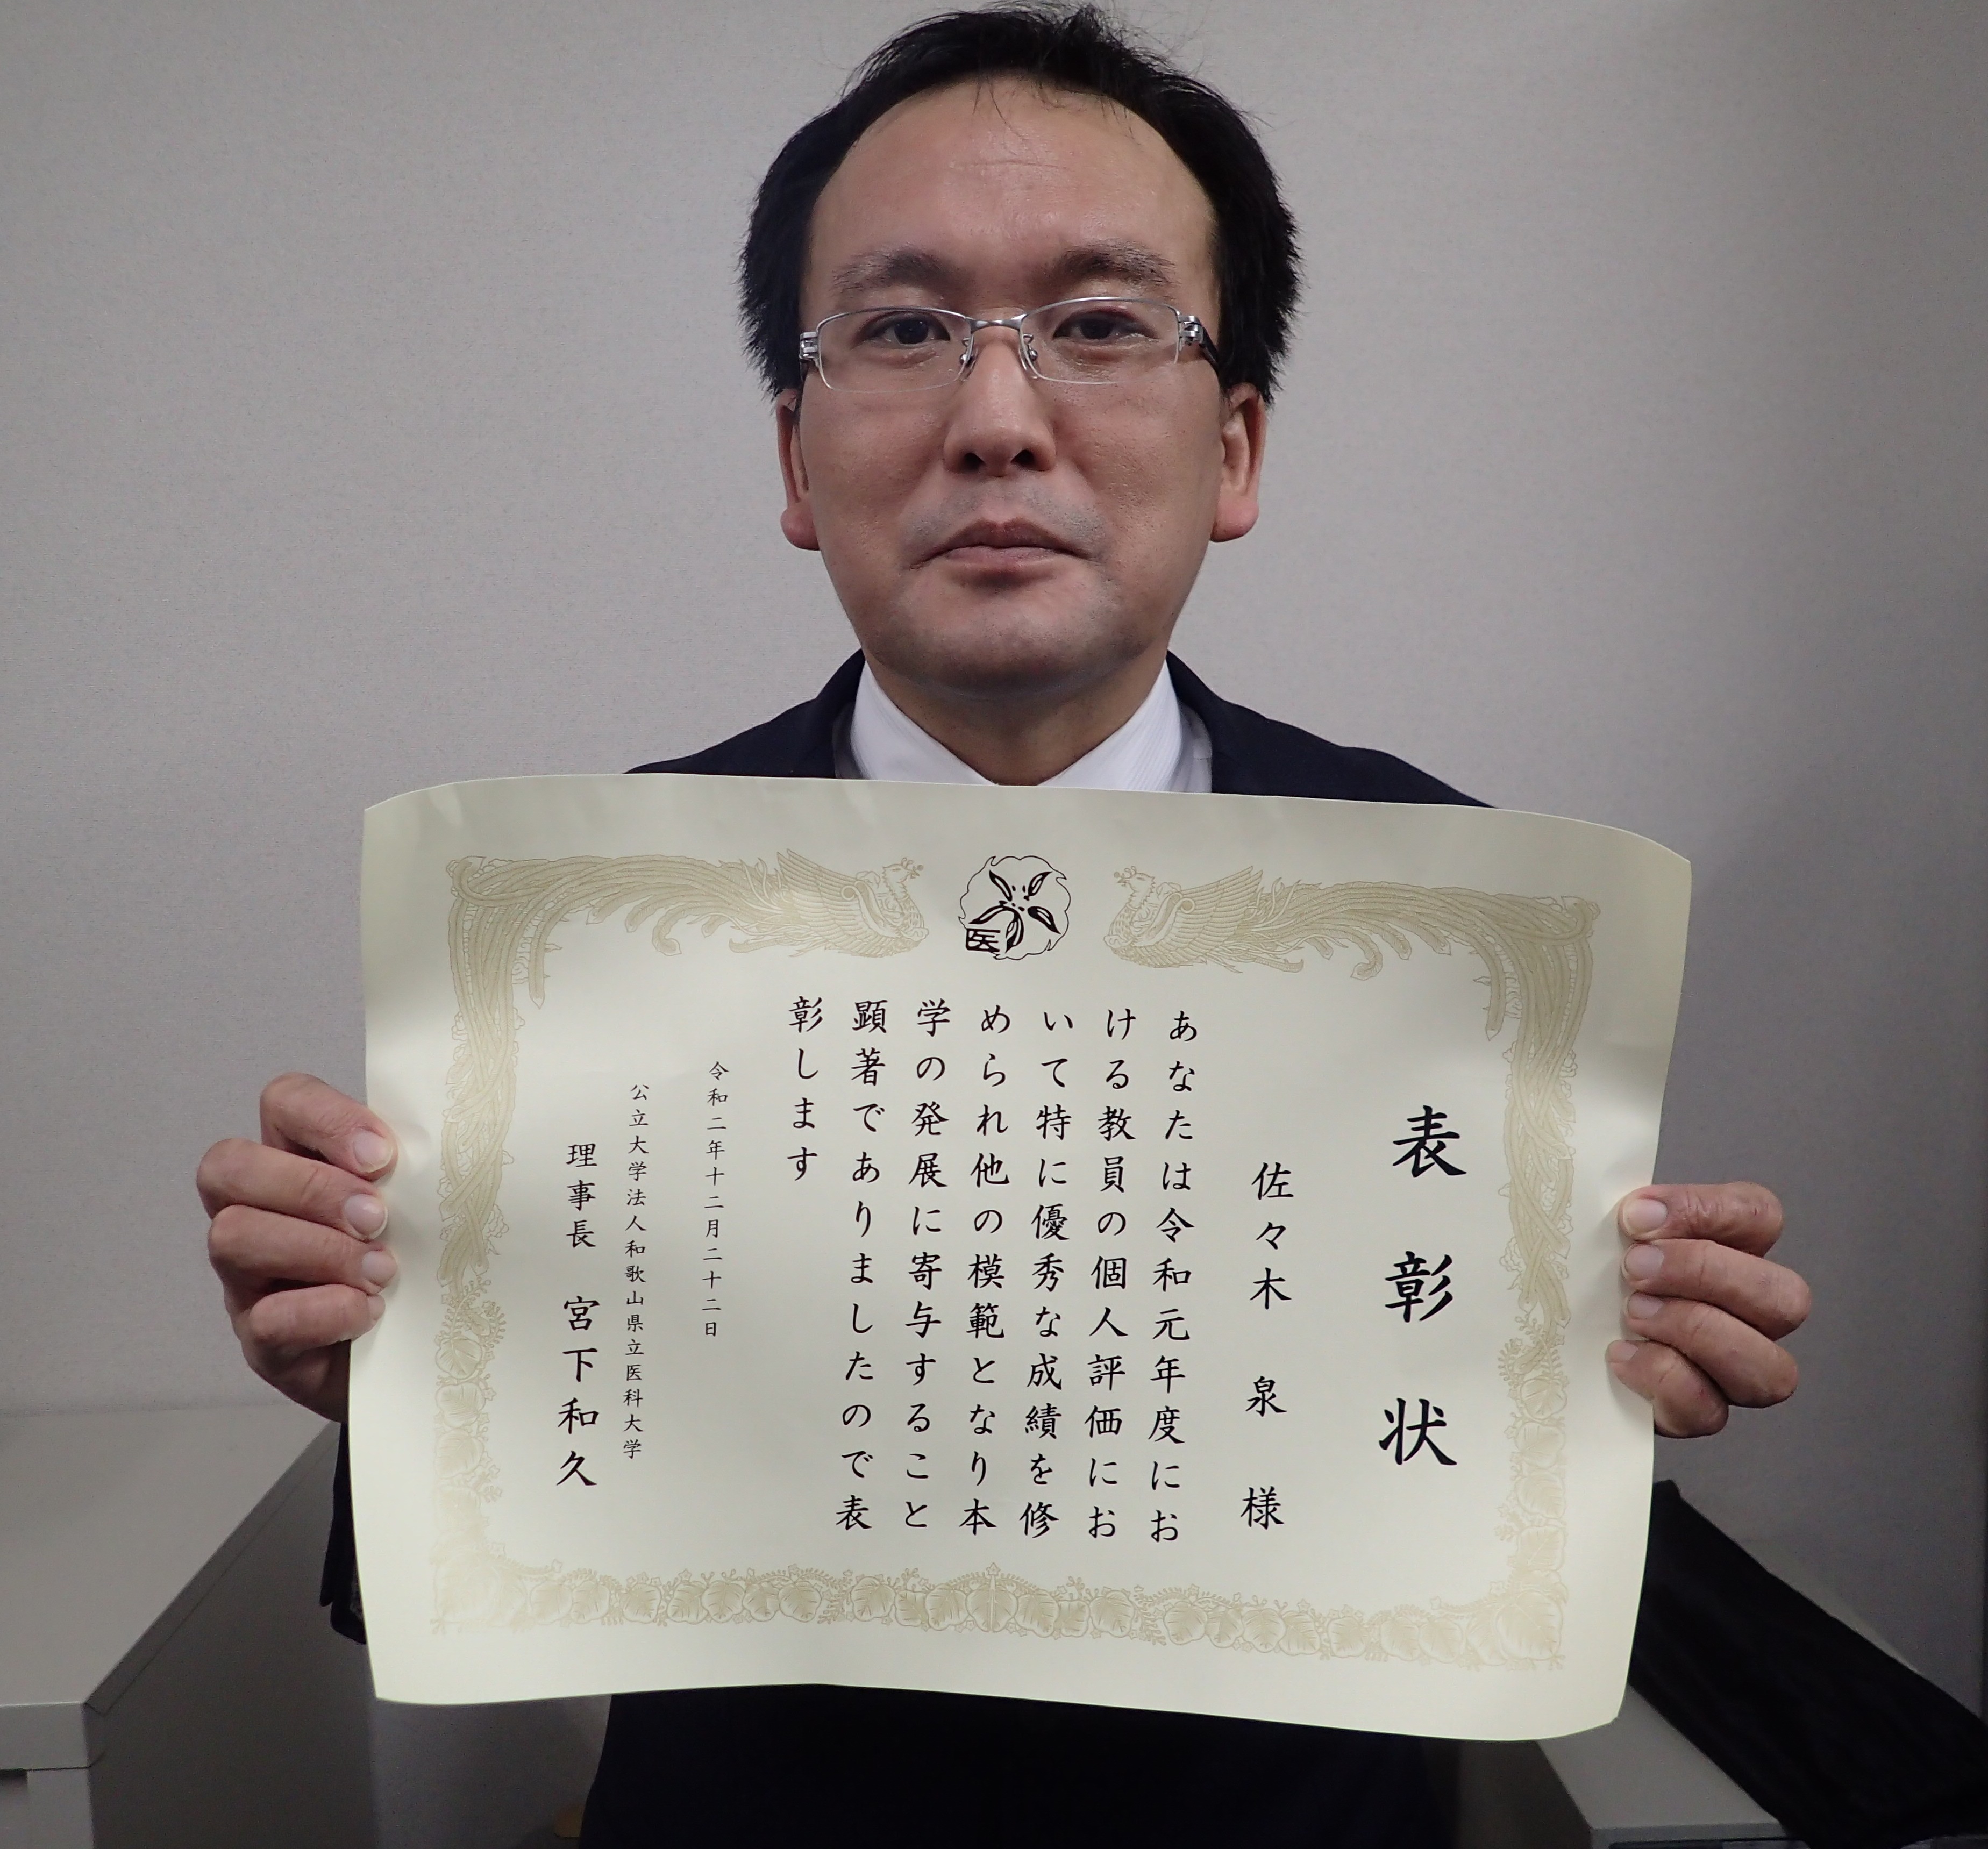 医
表彰状
佐々木 泉 様
あなたは令和元年度にお
ける教員の個人評価にお
いて特に優秀な成績を修
められ他の模範となり本
学の発展に寄与すること
顕著でありましたので表
彰します
令和二年十二月二十二日
公立大学法人和歌山県立医科大学
理事長 宮下和久